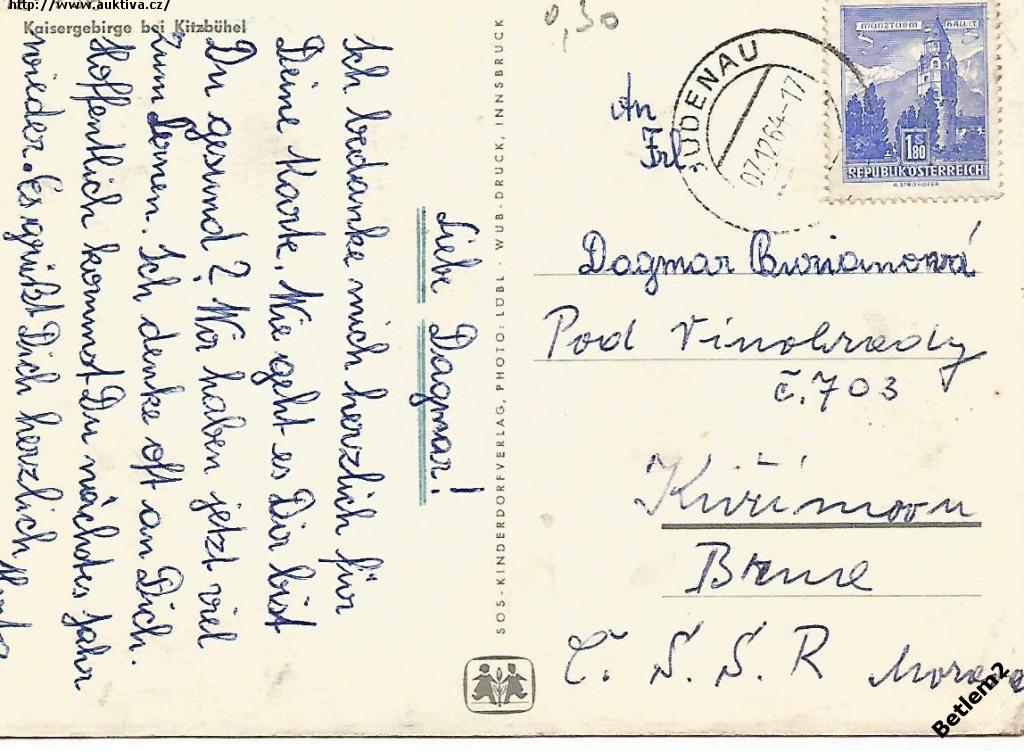 http://www.auktiva.cz/
Kaisergebirge bei Kitzbühel
Liebe Dagmar!
Ich bedanke mich herzlich für
Deine Karte. Wie geht es Dir bist
Du gesund? Wir haben jetzt viel
zum Lernen. Ich denke oft an Dich.
Hoffentlich kommst Du nächstes Jahr
wieder. Es grüßt Dich herzlich
SOS-KINDERDORFVERLAG, PHOTO: LÖBL - WUB-DRUCK, INNSBRUCK
0,30
JUDENAU
07.12.64-17
MÜNZTURM HALL i.T.
1S 80
REPUBLIK ÖSTERREICH
A. STROHOFER
An
Frl.
Dagmar Burianová
Pod Vinohrady
č. 703
Kuřim
Brna
Č. S. S. R Morava
Betlem2